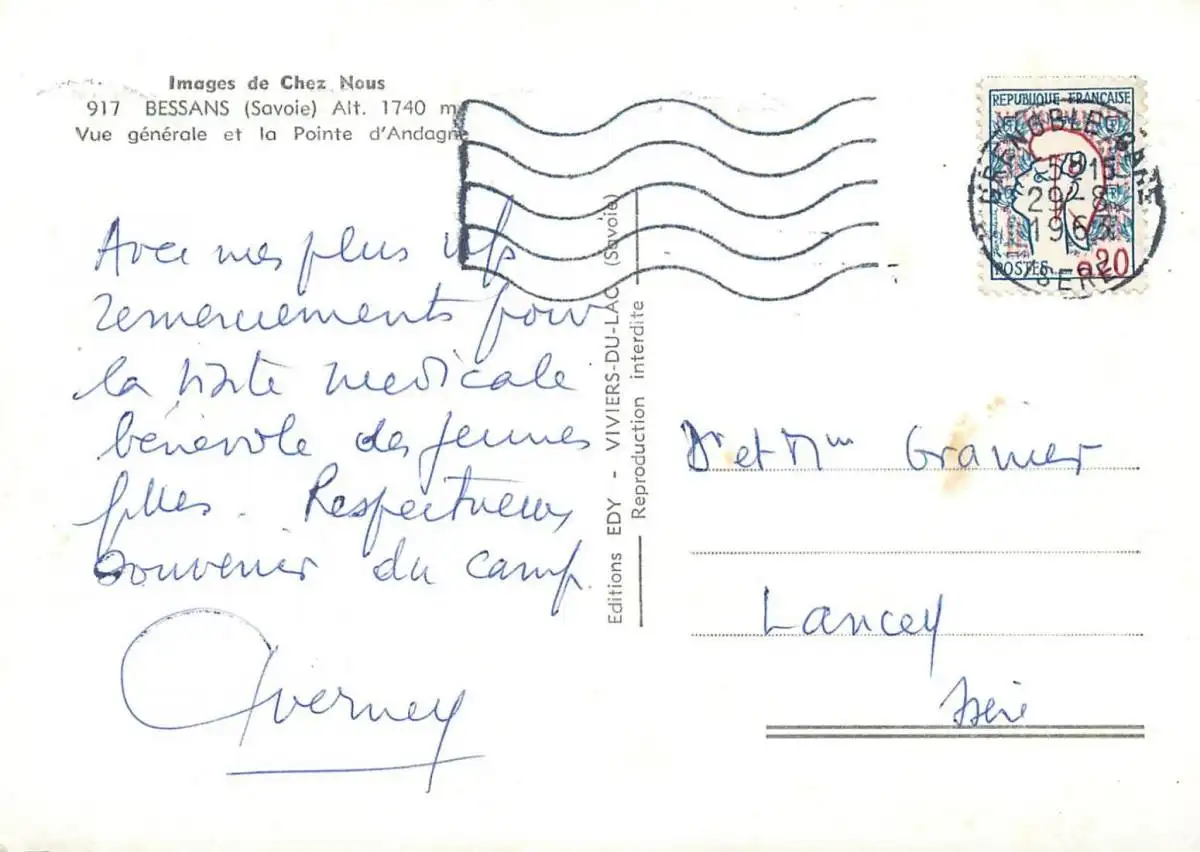 Images de Chez Nous
917 BESSANS (Savoie) Alt. 1740 m
Vue générale et la Pointe d'Andagne
Avec mes plus vifs
remerciements pour
la visite medicale
bénévole des jeunes
filles. Respectueux
souvenir du camp.
Averney
Editions EDY - VIVIERS-DU-LAC (Savoie)
Reproduction interdite
REPUBLIQUE FRANÇAISE
POSTES 0,20
GRENOBLE GARE
15
29-8
ISERE
Dr et Mme Granier
Lancey
Isère